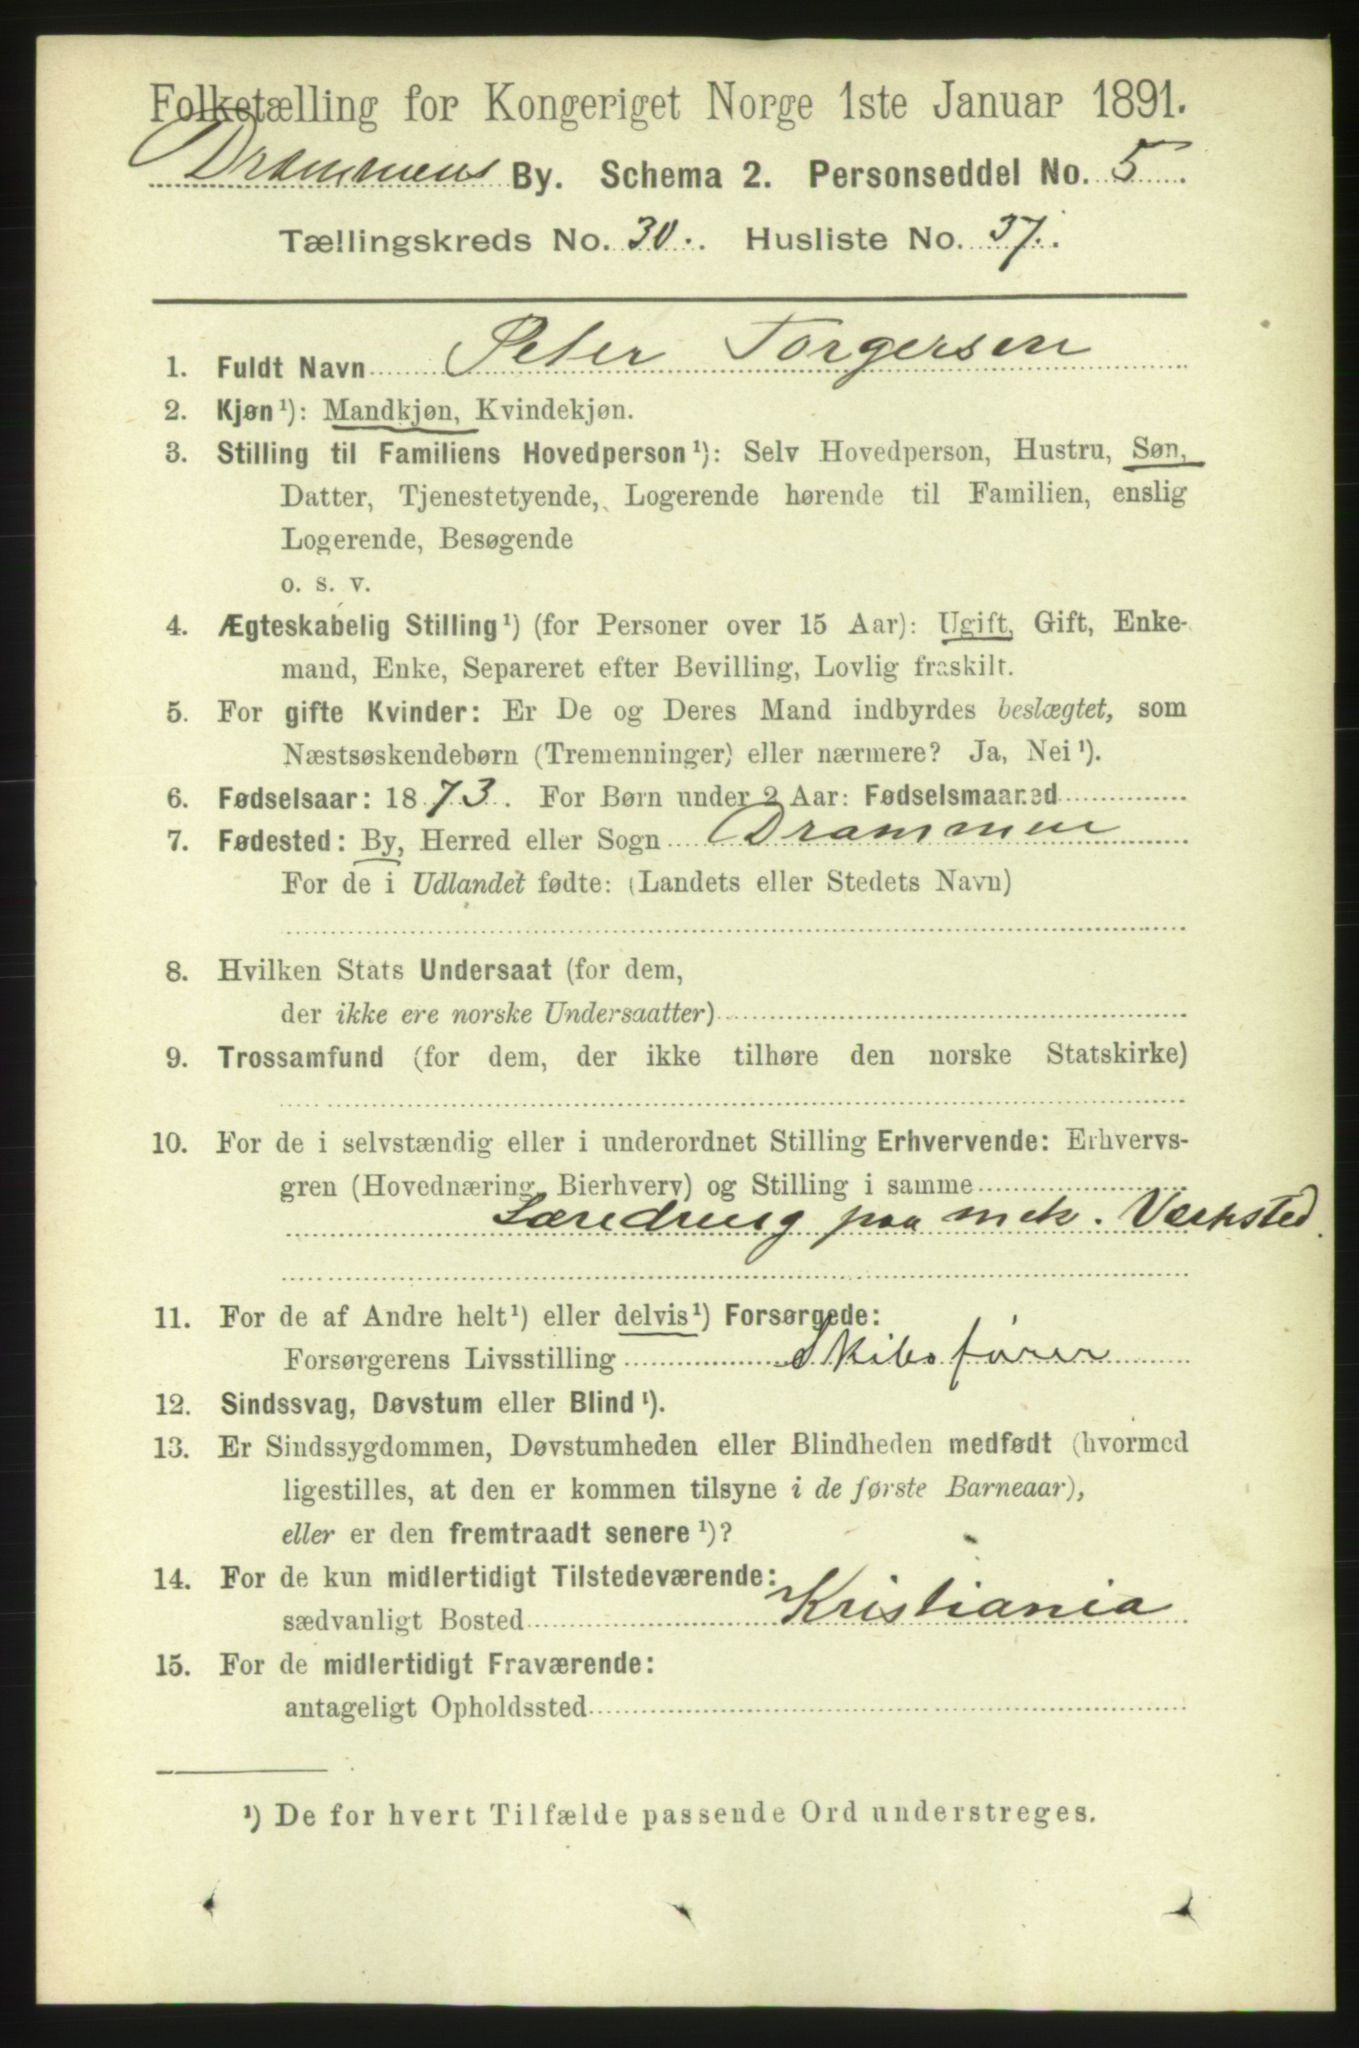 Folketælling for Kongeriget Norge 1ste Januar 1891.
Drammens By. Schema 2. Personseddel No. 5
Tællingskreds No. 30. Husliste No. 37.
1. Fuldt Navn Peter Torgersen
2. Kjøn¹): Mandkjøn, Kvindekjøn.
3. Stilling til Familiens Hovedperson¹): Selv Hovedperson, Hustru, Søn,
Datter, Tjenestetyende, Logerende hørende til Familien, enslig
Logerende, Besøgende
o. s. v.
4. Ægteskabelig Stilling¹) (for Personer over 15 Aar): Ugift, Gift, Enke-
mand, Enke, Separeret efter Bevilling, Lovlig fraskilt.
5. For gifte Kvinder: Er De og Deres Mand indbyrdes beslægtet, som
Næstsøskendebørn (Tremenninger) eller nærmere? Ja, Nei¹).
6. Fødselsaar: 1873. For Børn under 2 Aar: Fødselsmaaned
7. Fødested: By, Herred eller Sogn Drammen
For de i Udlandet fødte: (Landets eller Stedets Navn)
8. Hvilken Stats Undersaat (for dem,
der ikke ere norske Undersaatter)
9. Trossamfund (for dem, der ikke tilhøre den norske Statskirke)
10. For de i selvstændig eller i underordnet Stilling Erhvervende: Erhvervs-
gren (Hovednæring, Bierhverv) og Stilling i samme
Læredreng paa mek. Værksted.
11. For de af Andre helt¹) eller delvis¹) Forsørgede:
Forsørgerens Livsstilling Skibsfører
12. Sindssvag, Døvstum eller Blind¹).
13. Er Sindssygdommen, Døvstumheden eller Blindheden medfødt (hvormed
ligestilles, at den er kommen tilsyne i de første Barneaar),
eller er den fremtraadt senere¹)?
14. For de kun midlertidigt Tilstedeværende:
sædvanligt Bosted Kristiania
15. For de midlertidigt Fraværende:
antageligt Opholdssted
¹) De for hvert Tilfælde passende Ord understreges.